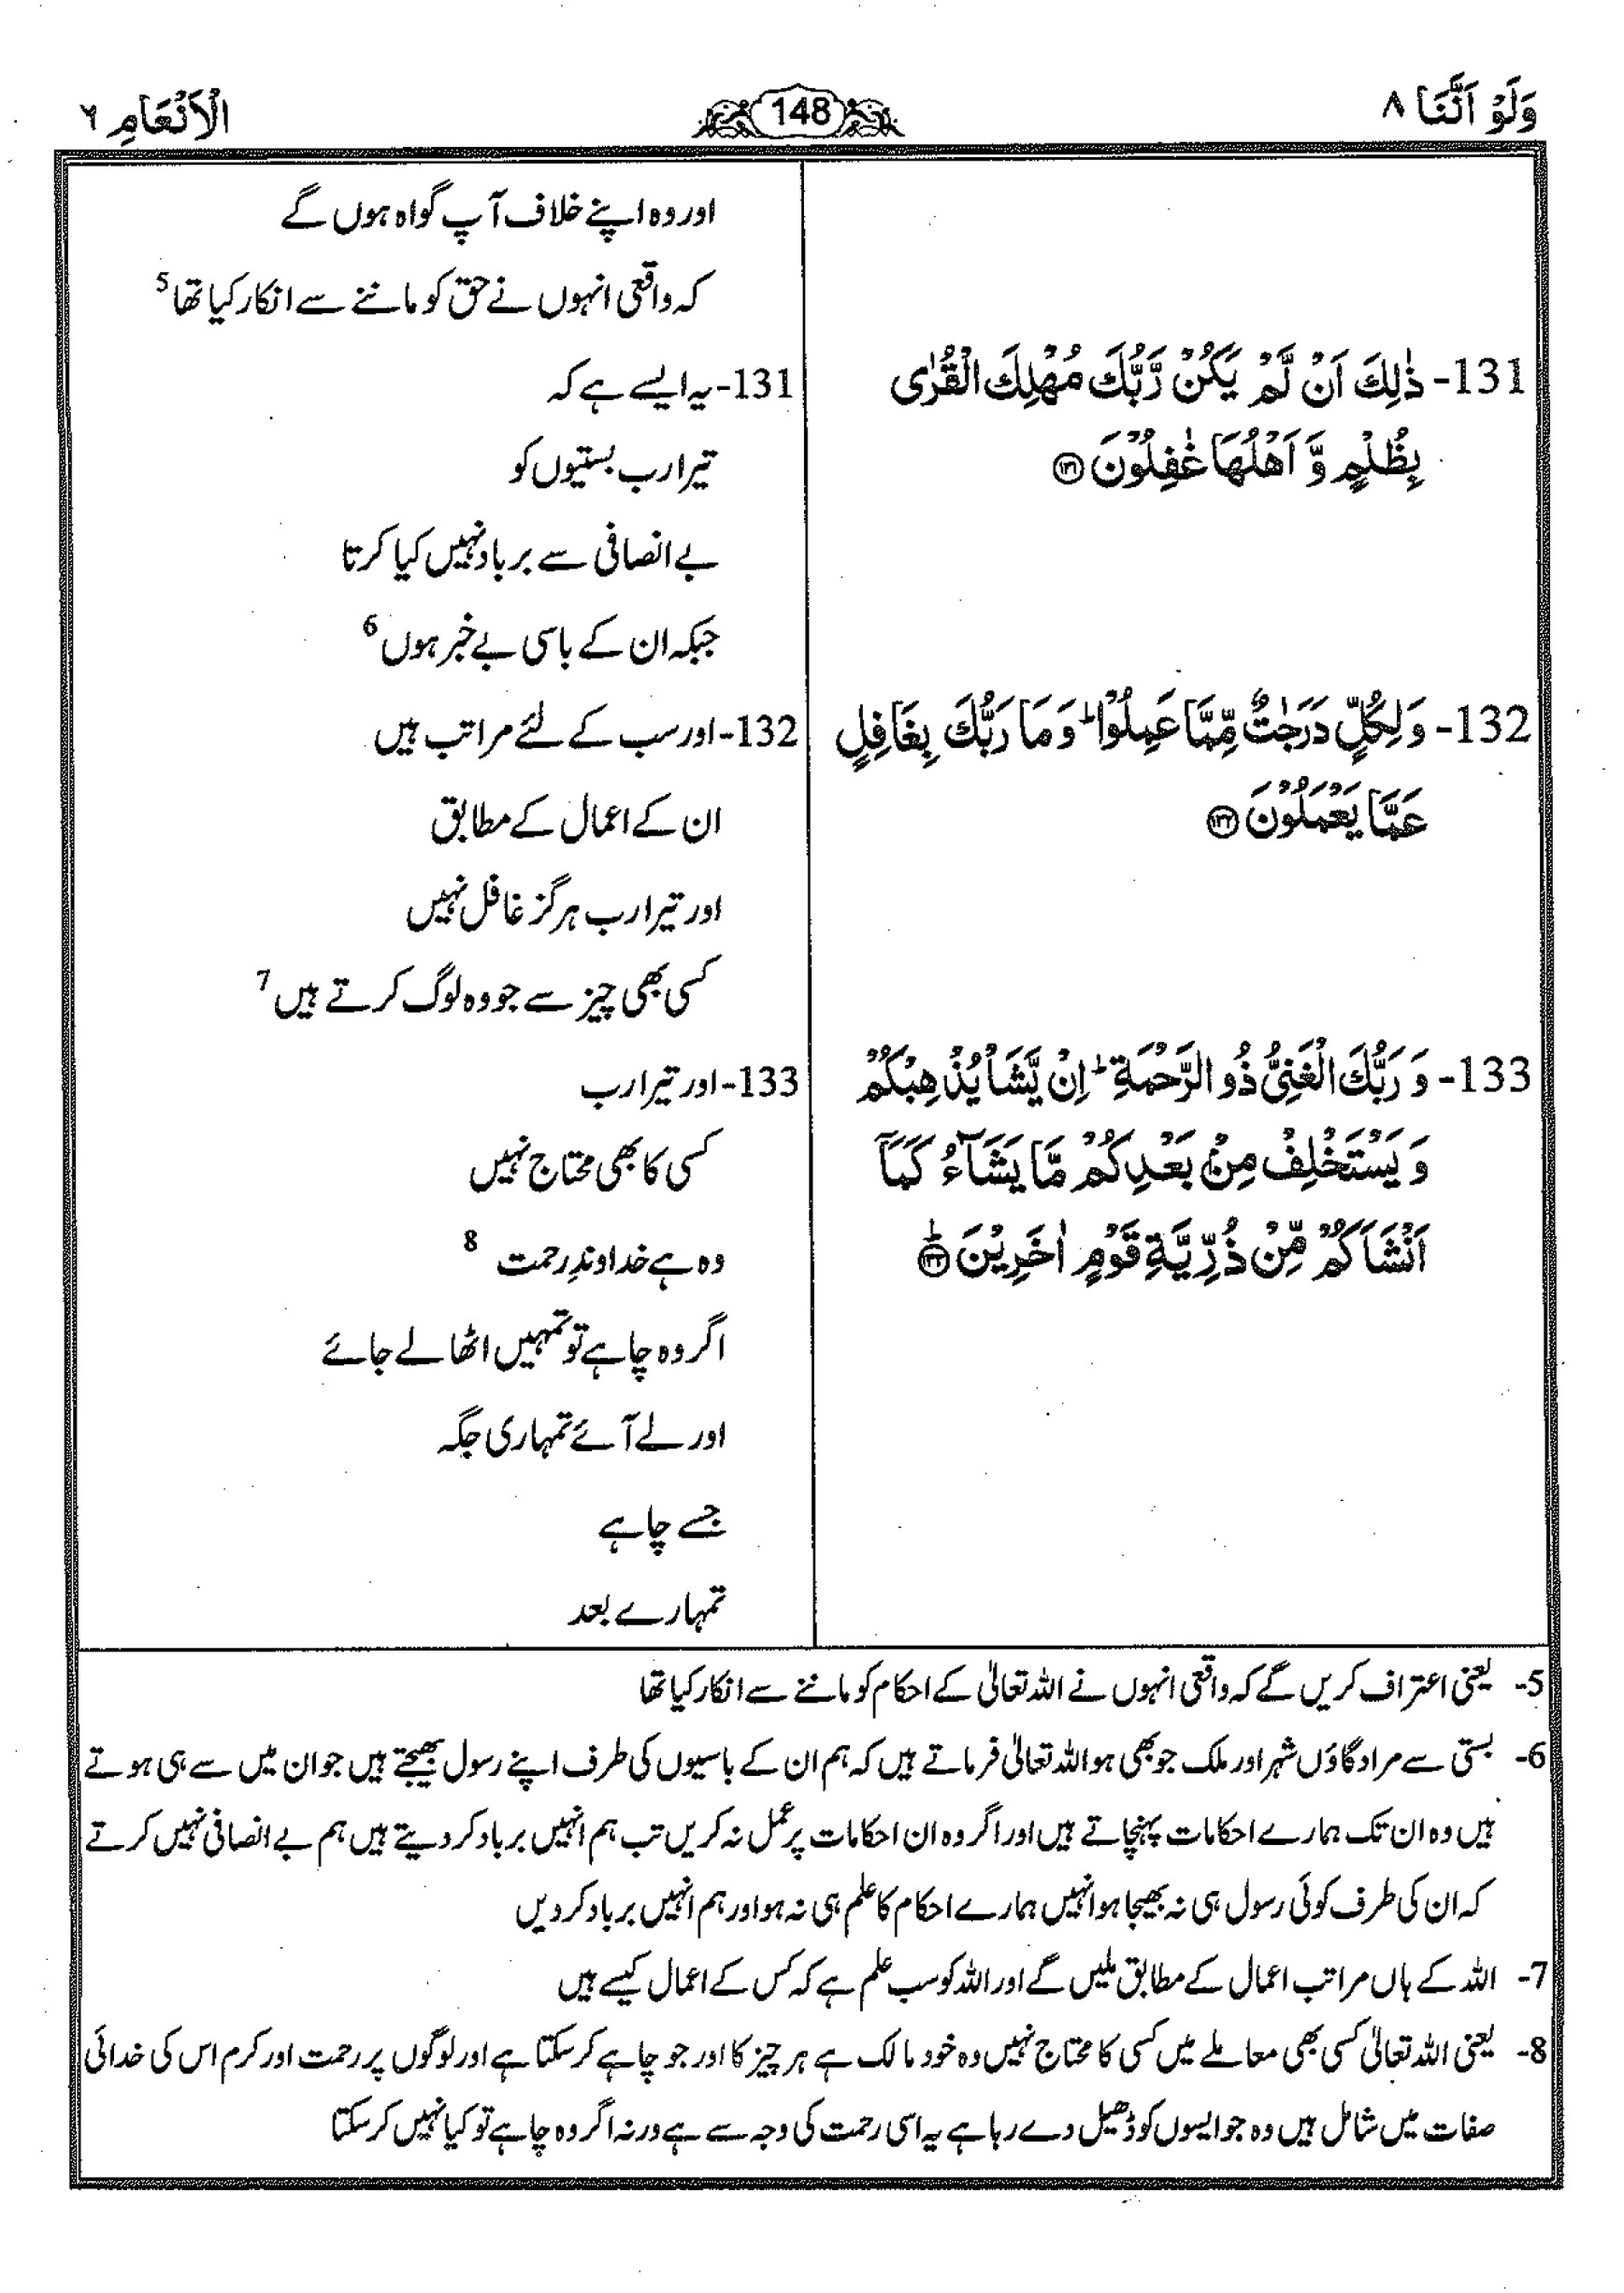 وَلَوْ اَنَّنَا ٨
148
الْاَنْعَامِ ٦
131- ذٰلِكَ اَنْ لَّمْ يَكُنْ رَّبُّكَ مُهْلِكَ الْقُرٰى
بِظُلْمٍ وَّ اَهْلُهَا غٰفِلُوْنَ ۝١٣١
132- وَ لِكُلٍّ دَرَجٰتٌ مِّمَّا عَمِلُوْا ؕ وَ مَا رَبُّكَ بِغَافِلٍ
عَمَّا يَعْمَلُوْنَ ۝١٣٢
133- وَ رَبُّكَ الْغَنِیُّ ذُو الرَّحْمَةِ ؕ اِنْ يَّشَاْ يُذْهِبْكُمْ
وَ يَسْتَخْلِفْ مِنْۢ بَعْدِكُمْ مَّا يَشَآءُ كَمَاۤ
اَنْشَاَكُمْ مِّنْ ذُرِّيَّةِ قَوْمٍ اٰخَرِيْنَ ؕ۝١٣٣
اور وہ اپنے خلاف آپ گواہ ہوں گے
کہ واقعی انہوں نے حق کو ماننے سے انکار کیا تھا 5
131- یہ ایسے ہے کہ
تیرا رب بستیوں کو
بے انصافی سے برباد نہیں کیا کرتا
جبکہ ان کے باسی بے خبر ہوں 6
132- اور سب کے لئے مراتب ہیں
ان کے اعمال کے مطابق
اور تیرا رب ہرگز غافل نہیں
کسی بھی چیز سے جو وہ لوگ کرتے ہیں 7
133- اور تیرا رب
کسی کا بھی محتاج نہیں
وہ ہے خداوندِ رحمت 8
اگر وہ چاہے تو تمہیں اٹھا لے جائے
اور لے آئے تمہاری جگہ
جسے چاہے
تمہارے بعد
5- یعنی اعتراف کریں گے کہ واقعی انہوں نے اللہ تعالیٰ کے احکام کو ماننے سے انکار کیا تھا
6- بستی سے مراد گاؤں شہر اور ملک جو بھی ہو اللہ تعالیٰ فرماتے ہیں کہ ہم ان کے باسیوں کی طرف اپنے رسول بھیجتے ہیں جو ان میں سے ہی ہوتے
ہیں وہ ان تک ہمارے احکامات پہنچاتے ہیں اور اگر وہ ان احکامات پر عمل نہ کریں تب ہم انہیں برباد کر دیتے ہیں ہم بے انصافی نہیں کرتے
کہ ان کی طرف کوئی رسول ہی نہ بھیجا ہو انہیں ہمارے احکام کا علم ہی نہ ہو اور ہم انہیں برباد کر دیں
7- اللہ کے ہاں مراتب اعمال کے مطابق ملیں گے اور اللہ کو سب علم ہے کہ کس کے اعمال کیسے ہیں
8- یعنی اللہ تعالیٰ کسی بھی معاملے میں کسی کا محتاج نہیں وہ خود مالک ہے ہر چیز کا اور جو چاہے کر سکتا ہے اور لوگوں پر رحمت اور کرم اس کی خدائی
صفات میں شامل ہیں وہ جو ایسوں کو ڈھیل دے رہا ہے یہ اسی رحمت کی وجہ سے ہے ورنہ اگر وہ چاہے تو کیا نہیں کر سکتا